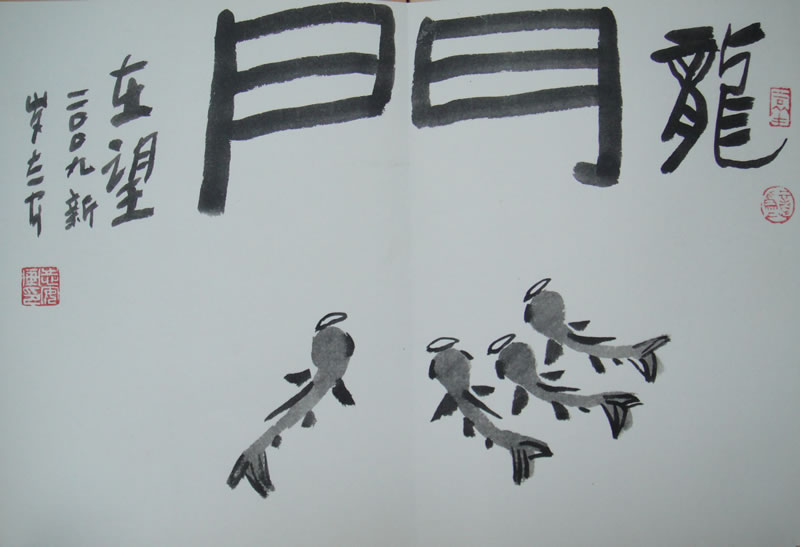 龍門
在望
二〇〇九新
岁志安